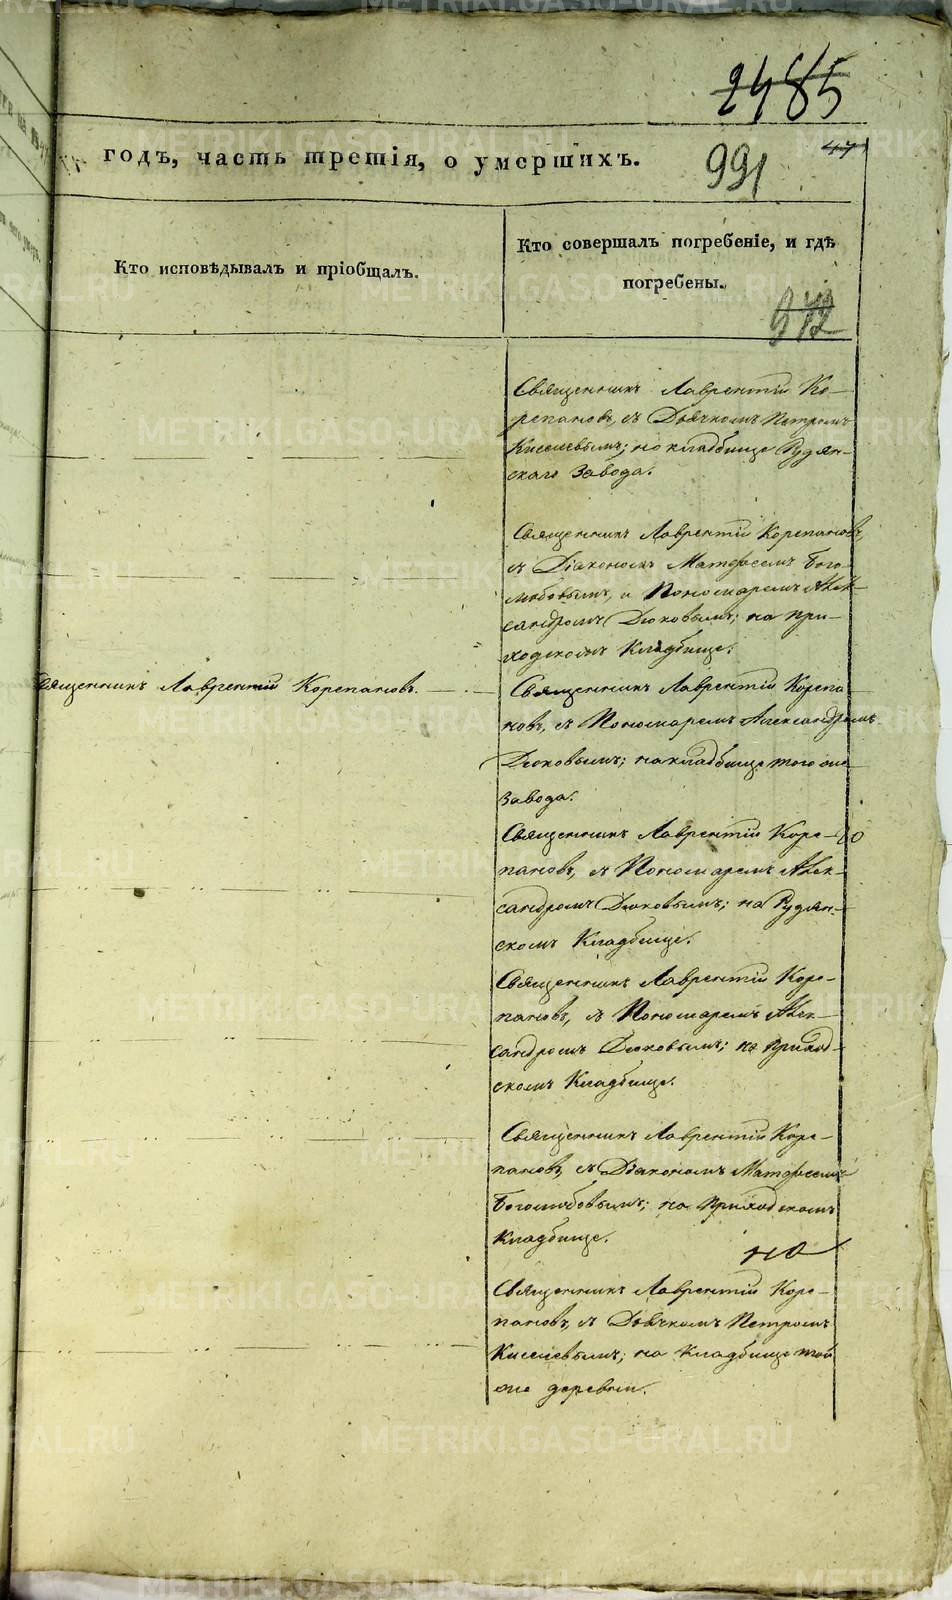 2485
годъ, часть третія, о умершихъ.
991
47
Кто исповѣдывалъ и пріобщалъ.
Кто совершалъ погребеніе, и гдѣ
погребены.
972
Священникъ Лаврентій Ко-
репановъ, съ Дьячкомъ Петромъ
Киселевымъ; на кладбище Рудян-
скаго Завода.
Священникъ Лаврентій Корепановъ,
съ Діакономъ Матфеемъ Бого-
любовымъ, и Пономаремъ Алек-
сандромъ Дюковымъ; на При-
ходскомъ Кладбище.
Священникъ Лаврентій Корепановъ.
Священникъ Лаврентій Корепа-
новъ, съ Пономаремъ Александромъ
Дюковымъ; на кладбище того же
Завода.
Священникъ Лаврентій Коре-
пановъ, съ Пономаремъ Алек-
сандромъ Дюковымъ; на Рудян-
скомъ Кладбище.
Священникъ Лаврентій Коре-
пановъ, съ Пономаремъ Алек-
сандромъ Дюковымъ; на Приход-
скомъ Кладбище.
Священникъ Лаврентій Коре-
пановъ, съ Діакономъ Матфеемъ
Боголюбовымъ; на Приходскомъ
Кладбище.
на
Священникъ Лаврентій Коре-
пановъ, съ Дьячкомъ Петромъ
Киселевымъ; на Кладбище той
же деревни.
METRIKI.GASO-URAL.RU